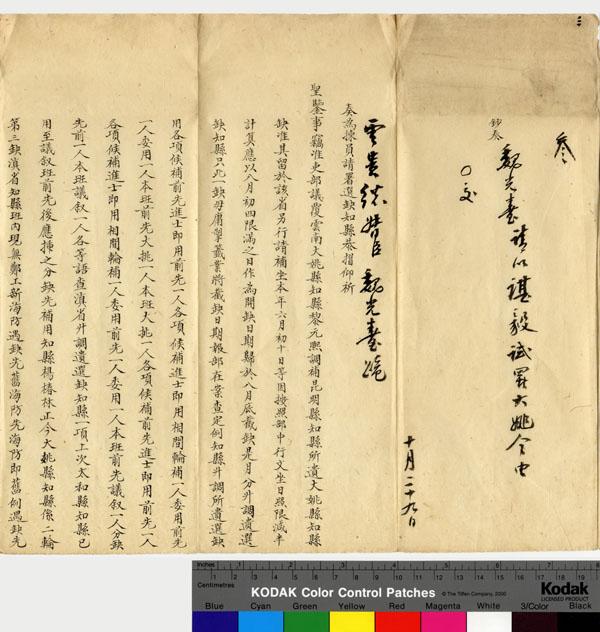 叅
鈔奏
魏光燾請以諶毅試署大姚令由
交
十月二十九日
雲貴總督臣魏光燾跪
奏為揀員請署選缺知縣恭摺仰祈
聖鑒事竊准吏部議覆雲南大姚縣知縣黎元熙調補昆明縣知縣所遺大姚縣知縣
缺准其留於該省另行請補坐本年六月初十日等因按照部中行文坐日照限減半
計算應以八月初四限滿之日作為開缺日期歸於八月底截缺是月分升調遺選
缺知縣只此一缺毋庸掣籤業將截缺日期報部在案查定例知縣升調所遺選缺
用各項候補前先進士即用前先一人各項候補進士即用相間輪補一人委用前先
一人委用一人本班前先大挑一人本班大挑一人各項候補前先進士即用前先一人
各項候補進士即用相間輪補一人委用前先一人委用一人本班前先議敘一人分缺
先前一人本班議敘一人各等語查滇省升調遺選缺知縣一項上次太和縣知縣已
用至議敘班前先後應挿之分缺先補用知縣楊椿林正今大姚縣知縣係二輪
第三缺滇省知縣班內現無鄭工新海防遇缺先舊海防先海防即舊例遇缺先
Inches
Centimetres
KODAK Color Control Patches
© The Tiffen Company, 2000
Kodak
LICENSED PRODUCT
Blue Cyan Green Yellow Red Magenta White 3/Color Black